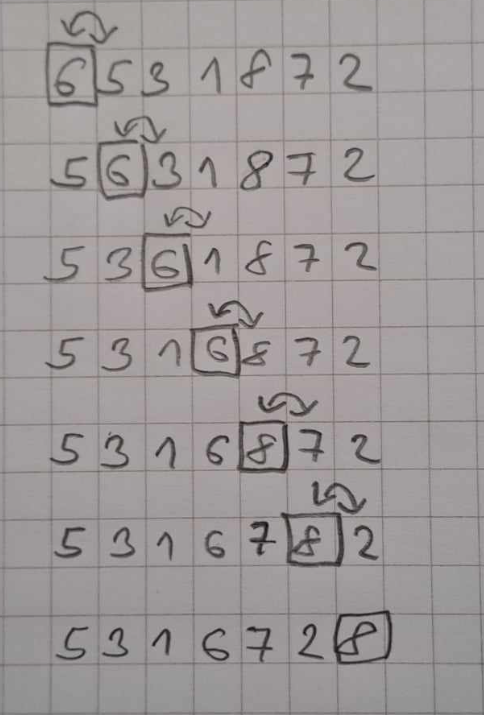 6 5 3 1 8 7 2
5 6 3 1 8 7 2
5 3 6 1 8 7 2
5 3 1 6 8 7 2
5 3 1 6 8 7 2
5 3 1 6 7 8 2
5 3 1 6 7 2 8